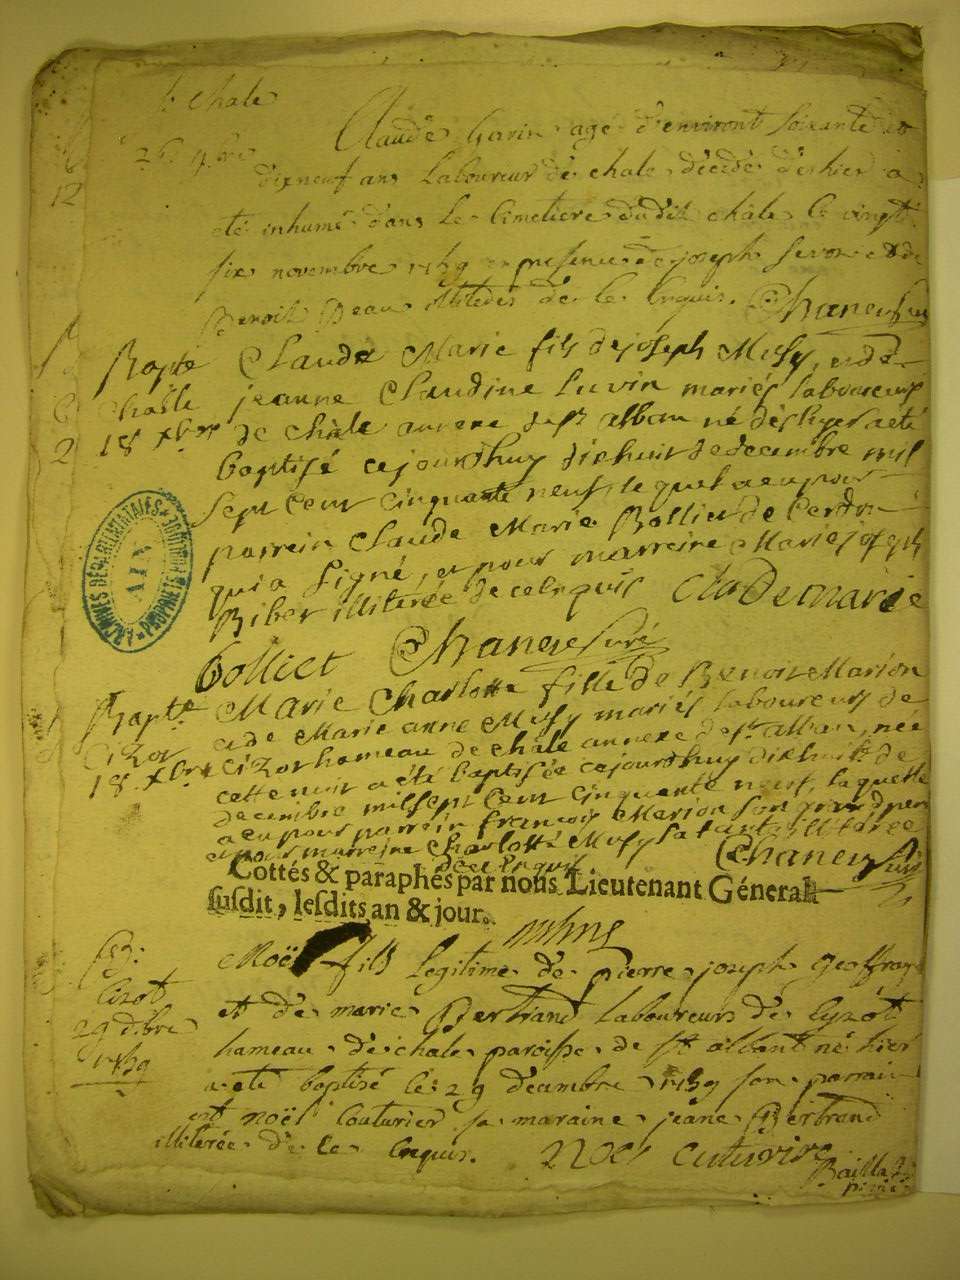 Chale
Claude Garin agé d'environt soixante et
26 9bre
dixneuf ans Laboureur de chale décédé d'ehier a
12
eté inhumé dans Le Cimetiere dudit châle le vingt
six novembre 1759 en presence de joseph et de
Benoit illiterés de ce Enquis. Chaney Curé
Bapte Claude Marie fils de joseph Musy, et de
Challe jeanne Claudine Luvin mariés laboureurs
18 xbre de Châle annexe de St alban né dès hyer a eté
2
baptisé cejourdhuy dixhuit de decembre mil
sept cent cinquante neuf, le quel a eu pour
parrein Claude Marie Bolliet de Cerdon
qui a signé, et pour marreine Marie joseph
Ribet illiterée de ce enquis Clademarie
bolliet Chaney Curé
Bapte Marie Charlotte fille de Benoit Marion
et de Marie anne Musy mariés laboureurs de
Cizot Cizot hameau de châle annexe de St alban, née
18 xbre cette nuit a été baptisée cejourdhuy dixhuit de
decembre mil sept cent cinquante neuf, laquelle
a eu pour parrein françois Marion son grand pere
et pour marreine Charlotte Musy sa tante illiterée
de ce enquis Chaney Curé
Cottés & paraphés par nous Lieutenant Géneral
susdit, lesdits an & jour.
Noël fils Legitime de pierre joseph Geoffray
Cizot et de marie Bertrand Laboureurs de Cyzot
29 d.bre hameau de chale paroisse de st albant né hier
1759 a eté baptisé le 29 décambre 1759 son parrain
est noël Couturier sa maraine jeane Bertrand
illiterée de ce Enquis. Noel cuturire
ARCHIVES DÉPARTEMENTALES
AIN
PROPRIÉTÉ PUBLIQUE